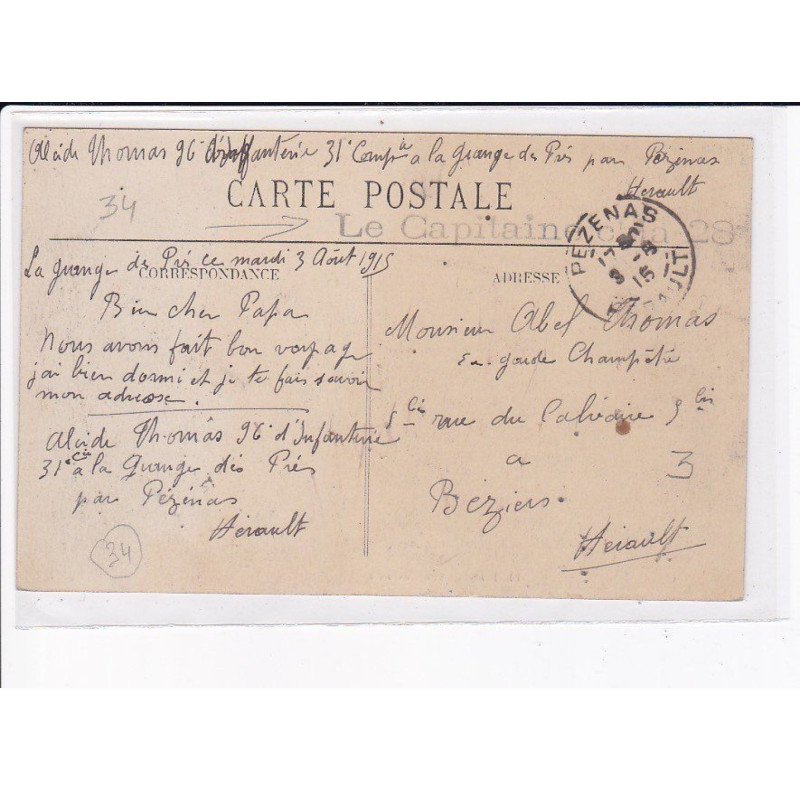 Alcide Thomas 96e d'Infanterie 31e Compie a la Grange des Prés par Pézénas
Hérault
CARTE POSTALE
34
Le Capitaine 28
PEZENAS
HERAULT
La Grange des Prés ce mardi 3 Août 1915
CORRESPONDANCE
Bien cher Papa
Nous avons fait bon voyage
j'ai bien dormi et je te fais savoir
mon adresse.
Alcide Thomas 96e d'Infanterie
31e Cie à la Grange des Prés
par Pézénas
Hérault
34
ADRESSE
Monsieur Abel Thomas
Ex garde Champêtre
5 bis rue du Calvaire 5 bis
a
Béziers.
Hérault
3